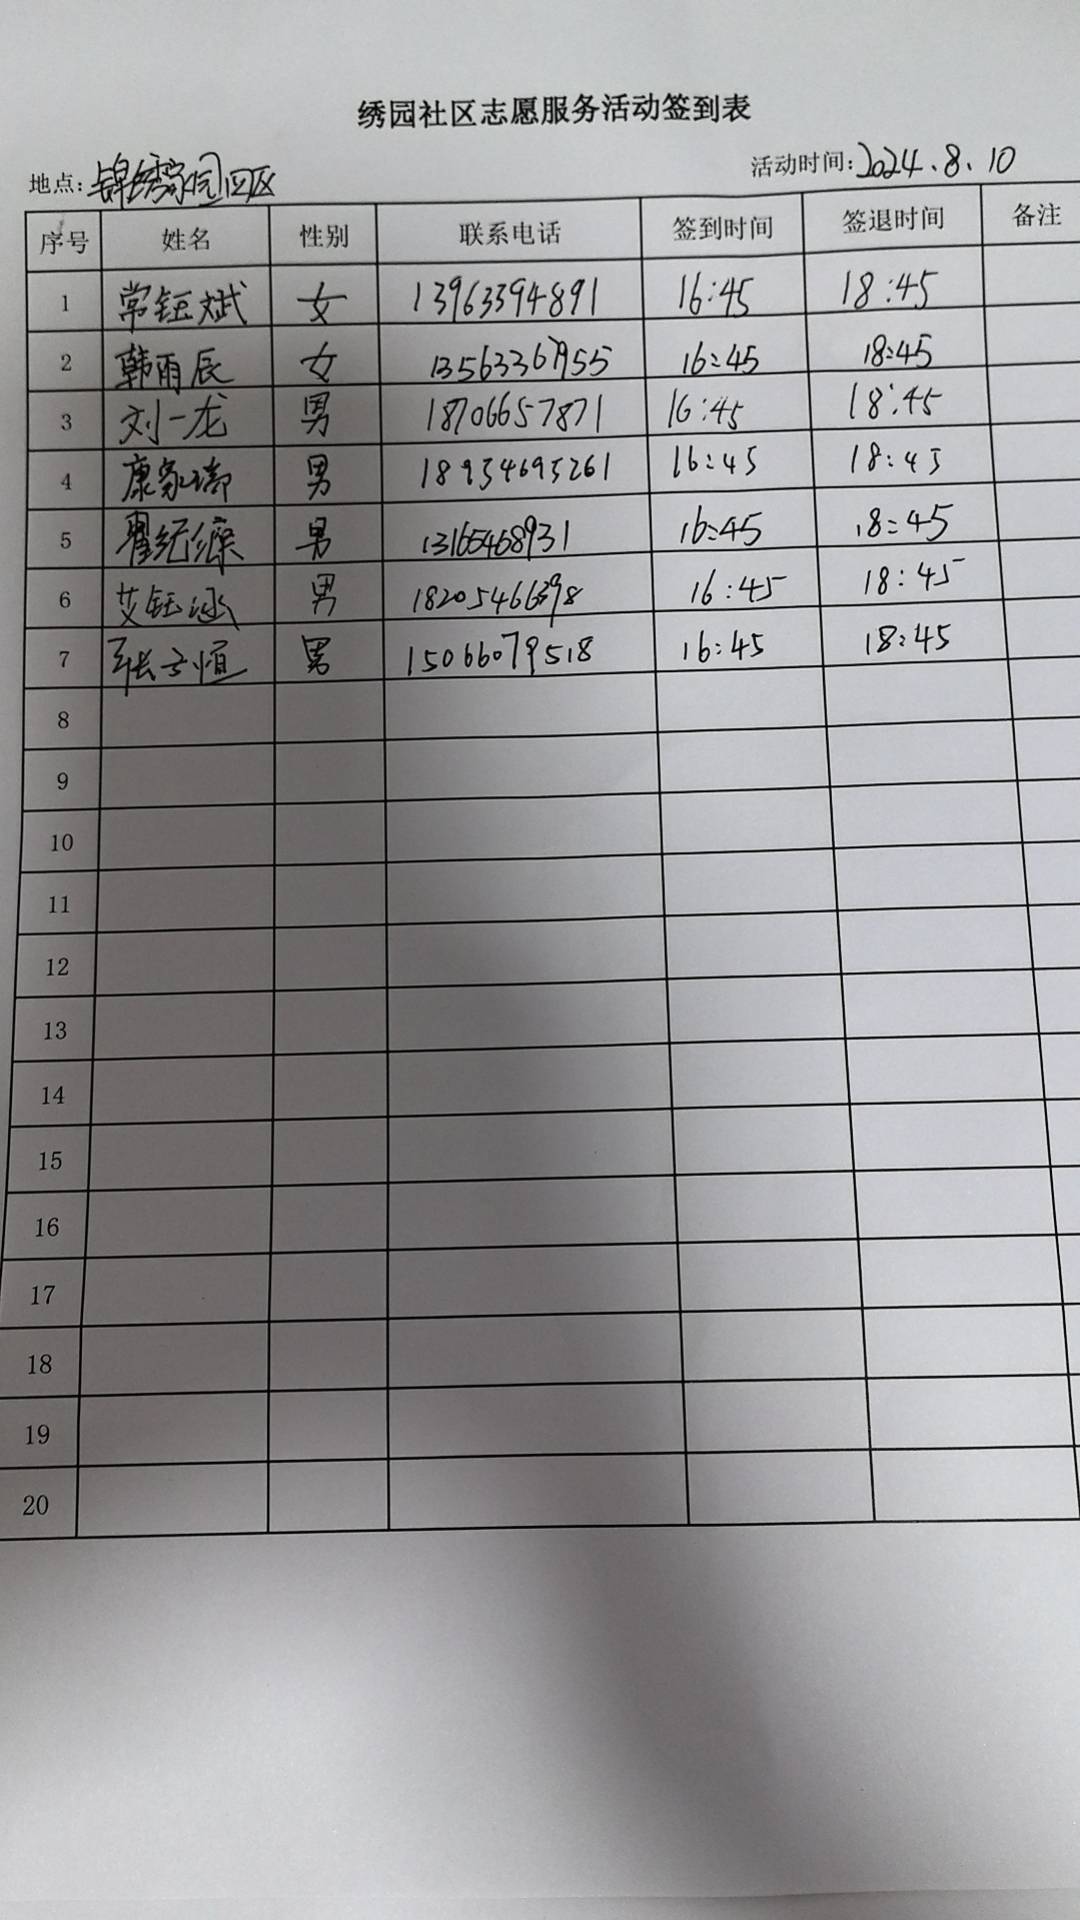 绣园社区志愿服务活动签到表
地点：锦绣家园四区 活动时间：2024.8.10
序号 姓名 性别 联系电话 签到时间 签退时间 备注
1 常钰斌 女 13963394891 16:45 18:45
2 韩雨辰 女 13563367955 16:45 18:45
3 刘一龙 男 18706657871 16:45 18:45
4 康家瑞 男 18954695261 16:45 18:45
5 翟纪 男 13165468931 16:45 18:45
6 艾钰涵 男 18205466398 16:45 18:45
7 张子恒 男 15066079518 16:45 18:45
8
9
10
11
12
13
14
15
16
17
18
19
20